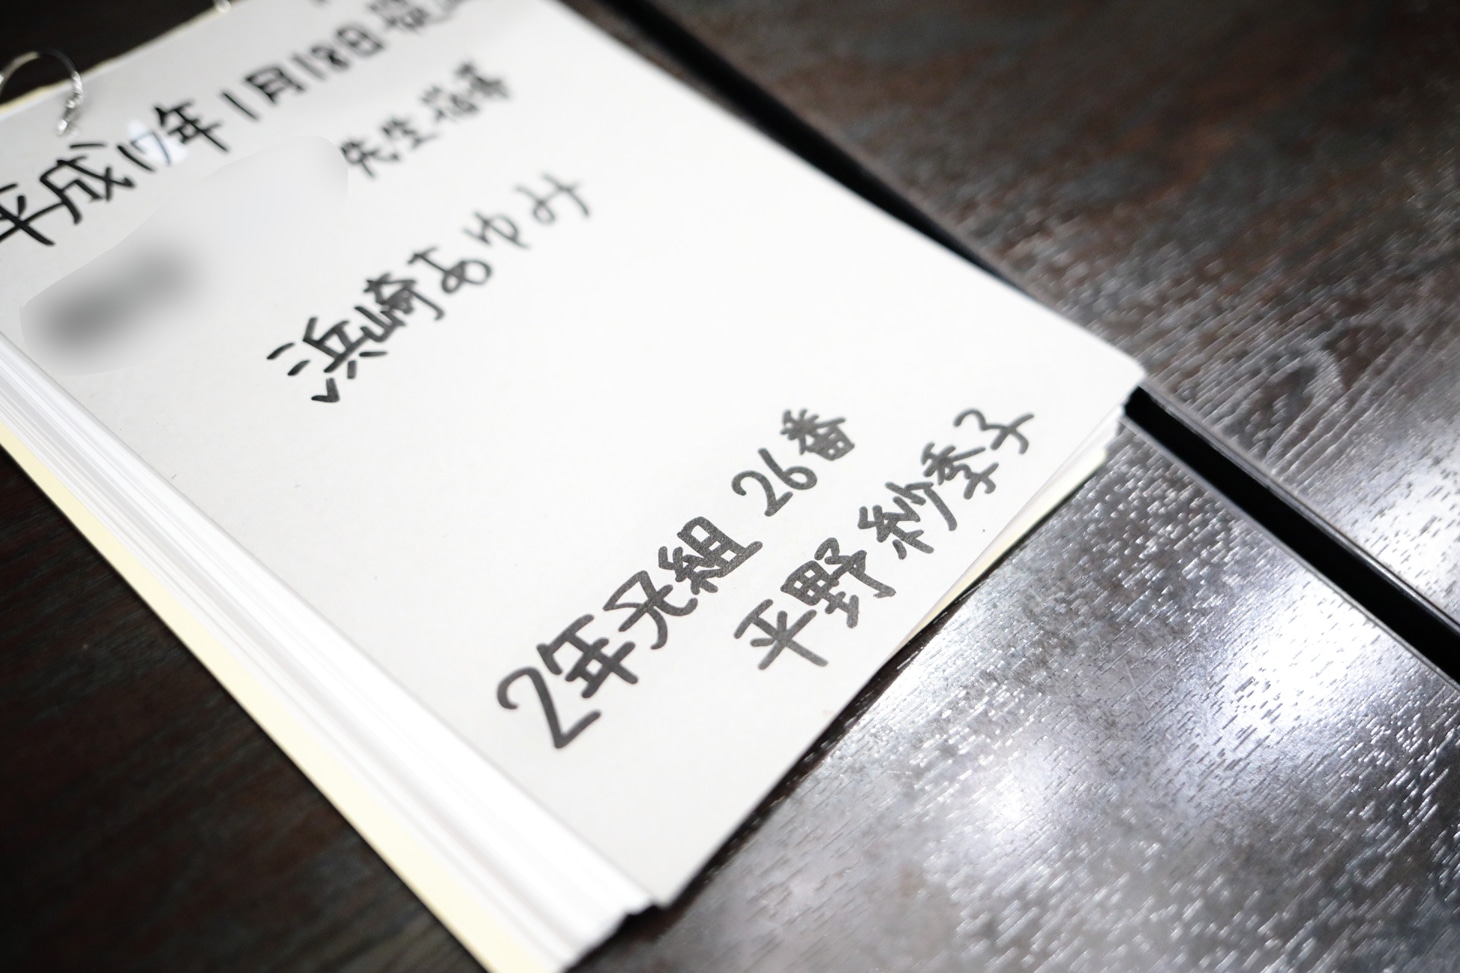 平成17年1月18日
先生指導
浜崎あゆみ
2年光組 26番
平野紗季子